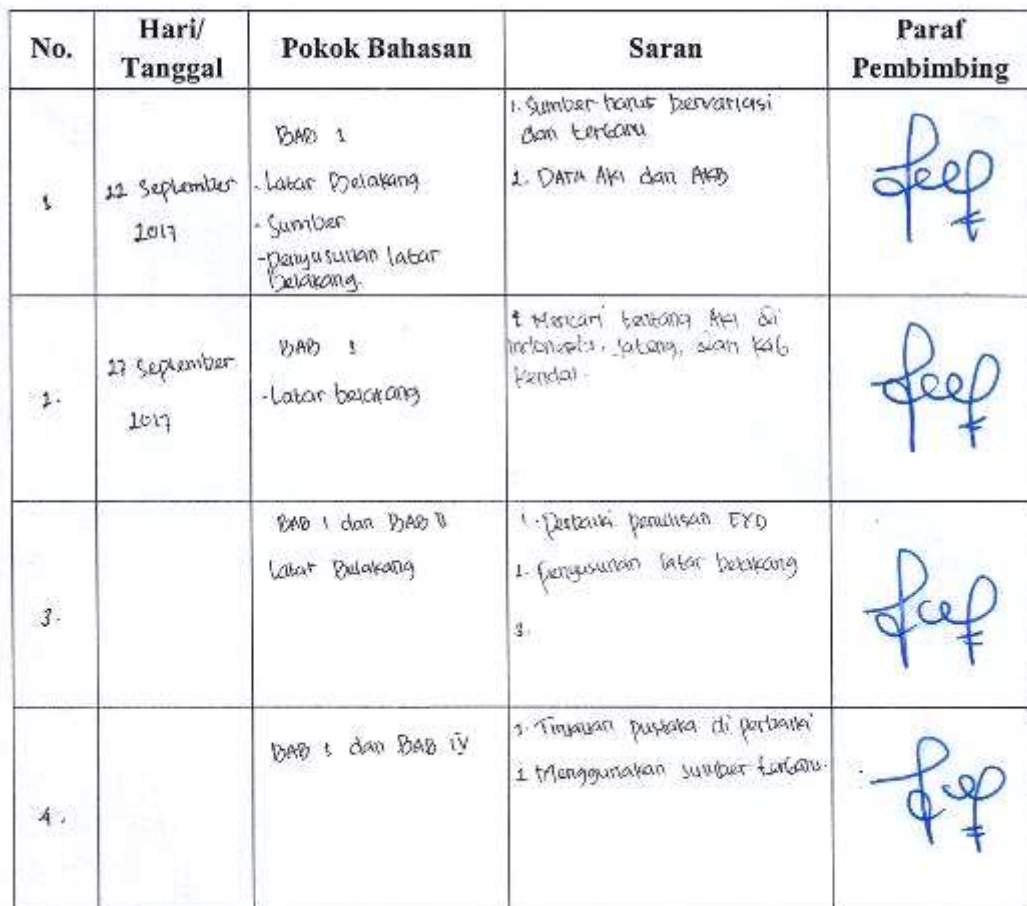 No.
Hari/
Tanggal
Pokok Bahasan
Saran
Paraf
Pembimbing
1
22 September
2017
BAB 1
- Latar Belakang
- Sumber
- Penyusunan latar
belakang.
1. Sumber harus bervariasi
dan terbaru
2. DATA AKI dan AKB
2.
27 September
2017
BAB 1
- Latar belakang
1 Mencari tentang AKI di
Indonesia, Jateng, dan Kab
Kendal.
3.
BAB I dan BAB II
Latar Belakang
1. Perbaiki penulisan EYD
2. Penyusunan latar belakang
3.
4.
BAB 1 dan BAB IV
1. Tinjauan pustaka di perbaiki
2 Menggunakan sumber terbaru.